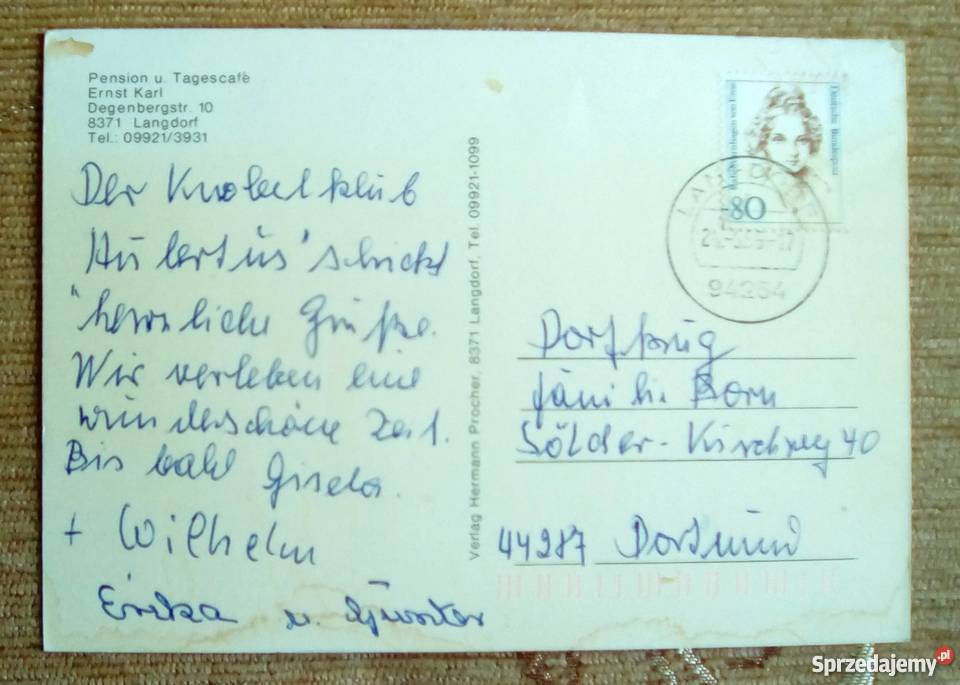 Pension u. Tagescafé
Ernst Karl
Degenbergstr. 10
8371 Langdorf
Tel.: 09921/3931
Der Knobelklub
Hubertus" schickt
"herrliche Grüße.
Wir verleben eine
wunderschöne Zeit.
Bis bald Gisela.
+ Wilhelm
Erika u. Günter
Verlag Hermann Procher, 8371 Langdorf, Tel. 09921-1099
Deutsche Bundespost
80
94264
Dorfkrug
Born
Sölder-Kirchweg 40
44287 Dortmund
Sprzedajemy.pl